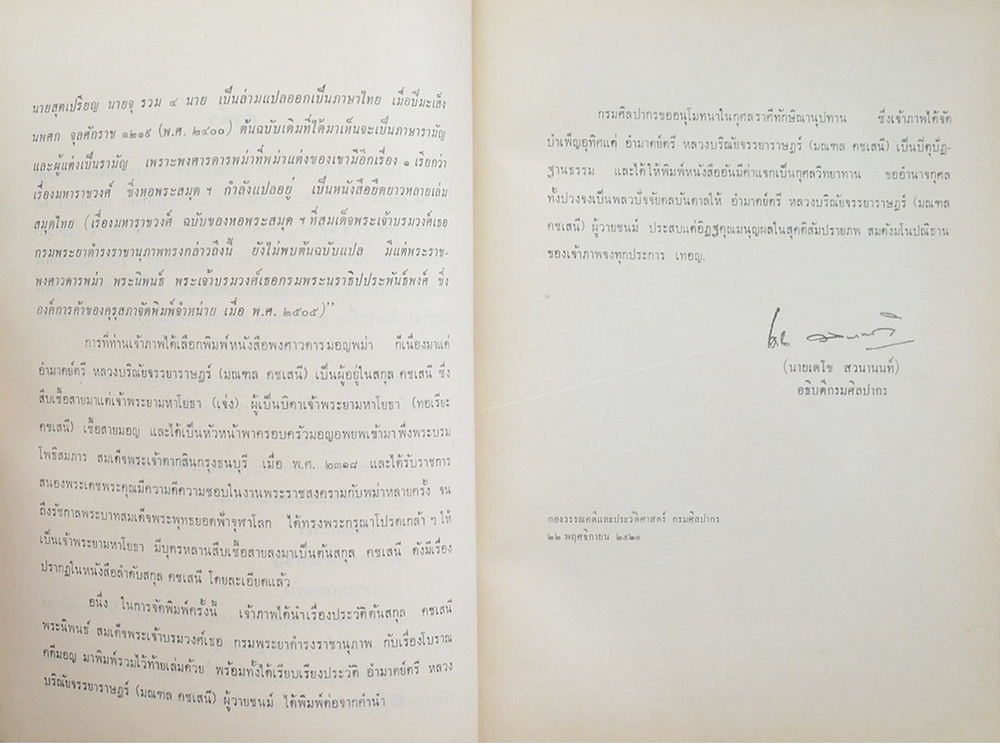 นายสุดเปรียญ นายจุ รวม ๔ นาย เป็นล่ามแปลออกเป็นภาษาไทย เมื่อปีมะเส็ง
นพศก จุลศักราช ๑๒๑๙ (พ.ศ. ๒๔๐๐) ต้นฉบับเดิมที่ได้มาเห็นจะเป็นภาษารามัญ
และผู้แต่งเป็นรามัญ เพราะพงศาวดารพม่าที่พม่าแต่งของเขามีอีกเรื่อง ๑ เรียกว่า
เรื่องมหาราชวงศ์ ซึ่งหอพระสมุด ฯ กำลังแปลอยู่ เป็นหนังสือยืดยาวหลายเล่ม
สมุดไทย (เรื่องมหาราชวงศ์ ฉบับของหอพระสมุด ฯ ที่สมเด็จพระเจ้าบรมวงศ์เธอ
กรมพระยาดำรงราชานุภาพทรงกล่าวถึงนี้ ยังไม่พบต้นฉบับแปล มีแต่พระราช-
พงศาวดารพม่า พระนิพนธ์ พระเจ้าบรมวงศ์เธอกรมพระนราธิปประพันธ์พงศ์ ซึ่ง
องค์การค้าของคุรุสภาจัดพิมพ์จำหน่าย เมื่อ พ.ศ. ๒๕๐๕)”
การที่ท่านเจ้าภาพได้เลือกพิมพ์หนังสือพงศาวดารมอญพม่า ก็เนื่องมาแต่
อำมาตย์ตรี หลวงบริณัยจรรยาราษฎร์ (มณฑล คชเสนี) เป็นผู้อยู่ในสกุล คชเสนี ซึ่ง
สืบเชื้อสายมาแต่เจ้าพระยามหาโยธา (เจ่ง) ผู้เป็นบิดาเจ้าพระยามหาโยธา (ทอเรียะ
คชเสนี) เชื้อสายมอญ และได้เป็นหัวหน้าพาครอบครัวมอญอพยพเข้ามาพึ่งพระบรม
โพธิสมภาร สมเด็จพระเจ้าตากสินกรุงธนบุรี เมื่อ พ.ศ. ๒๓๑๘ และได้รับราชการ
สนองพระเดชพระคุณมีความดีความชอบในงานพระราชสงครามกับพม่าหลายครั้ง จน
ถึงรัชกาลพระบาทสมเด็จพระพุทธยอดฟ้าจุฬาโลก ได้ทรงพระกรุณาโปรดเกล้า ฯ ให้
เป็นเจ้าพระยามหาโยธา มีบุตรหลานสืบเชื้อสายลงมาเป็นต้นสกุล คชเสนี ดังมีเรื่อง
ปรากฏในหนังสือลำดับสกุล คชเสนี โดยละเอียดแล้ว
อนึ่ง ในการจัดพิมพ์ครั้งนี้ เจ้าภาพได้นำเรื่องประวัติต้นสกุล คชเสนี
พระนิพนธ์ สมเด็จพระเจ้าบรมวงศ์เธอ กรมพระยาดำรงราชานุภาพ กับเรื่องโบราณ
คดีมอญ มาพิมพ์รวมไว้ท้ายเล่มด้วย พร้อมทั้งได้เรียบเรียงประวัติ อำมาตย์ตรี หลวง
บริณัยจรรยาราษฎร์ (มณฑล คชเสนี) ผู้วายชนม์ ได้พิมพ์ต่อจากคำนำ
กรมศิลปากรขออนุโมทนาในกุศลราศีทักษิณานุปทาน ซึ่งเจ้าภาพได้จัด
บำเพ็ญอุทิศแด่ อำมาตย์ตรี หลวงบริณัยจรรยาราษฎร์ (มณฑล คชเสนี) เป็นปิตุปัฏ-
ฐานธรรม และได้ให้พิมพ์หนังสืออันมีค่าแจกเป็นกุศลวิทยาทาน ขออำนาจกุศล
ทั้งปวงจงเป็นพลวปัจจัยดลบันดาลให้ อำมาตย์ตรี หลวงบริณัยจรรยาราษฎร์ (มณฑล
คชเสนี) ผู้วายชนม์ ประสบแด่อิฏฐคุณมนุญผลในสุคติสัมปรายภพ สมดังมโนปณิธาน
ของเจ้าภาพจงทุกประการ เทอญ.
(นายเดโช สวนานนท์)
อธิบดีกรมศิลปากร
กองวรรณคดีและประวัติศาสตร์ กรมศิลปากร
๒๒ พฤศจิกายน ๒๕๒๐